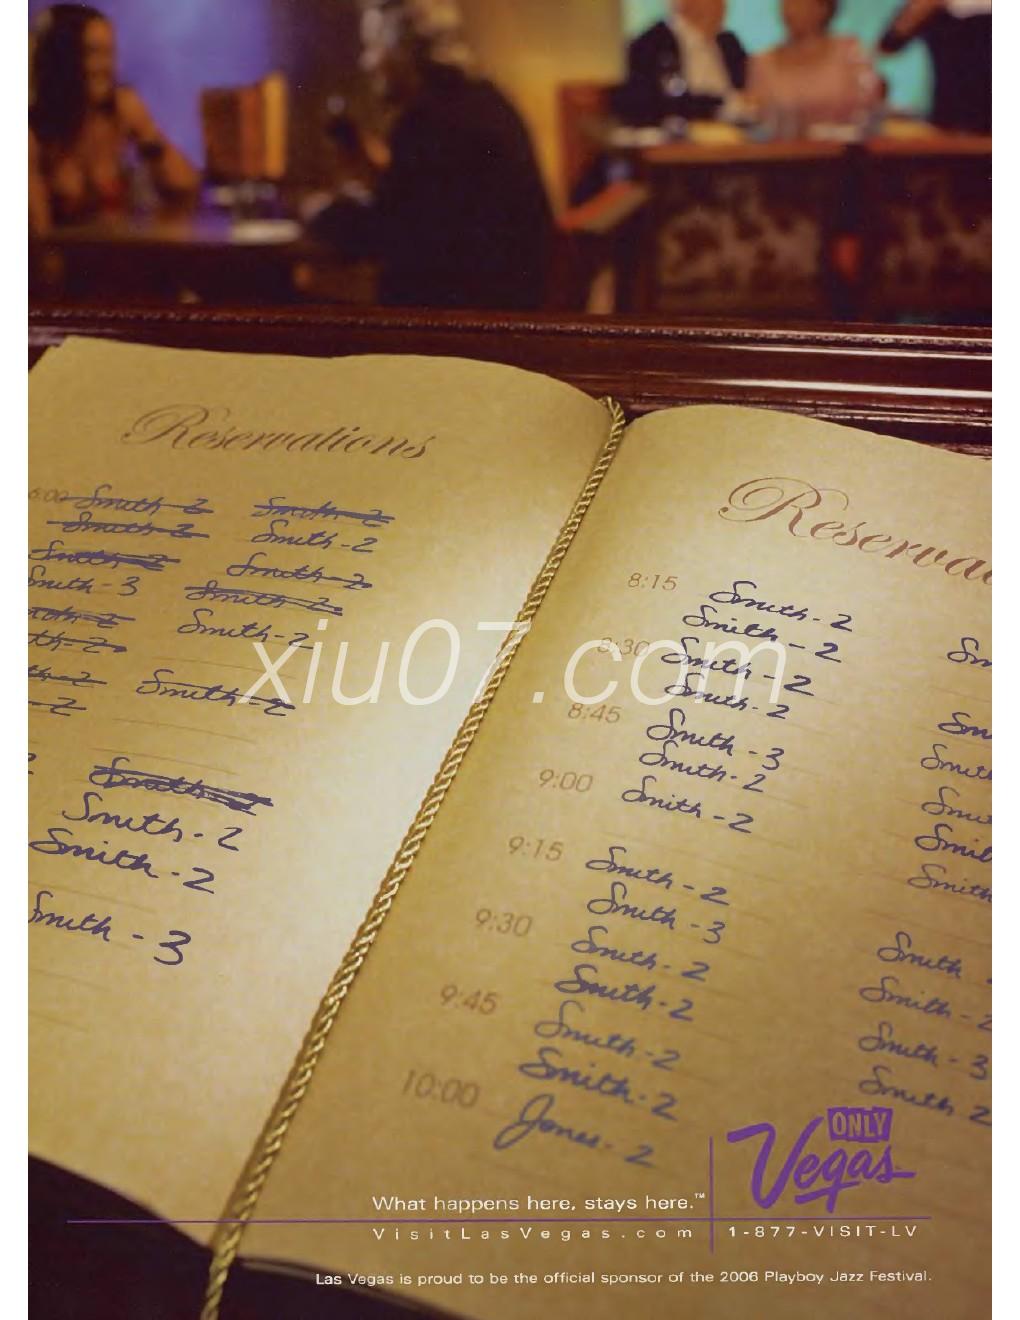 Reservations
6:00 Smith - 2 Smith - 2
Smith - 2 Smith - 2
Smith - 2 Smith - 2
Smith - 3 Smith - 2
Smith - 2
Smith - 2
Smith - 2
- 2
Smith - 2
Smith - 2
Smith - 2
Smith - 3
Reserva
8:15 Smith - 2
Smith - 2
8:30 Smith - 2 Sm
Smith - 2
8:45 Smith - 3 Sm
Smith - 2 Smith
9:00 Smith - 2 Smi
Smit
9:15 Smith - 2 Smith
Smith - 3
9:30 Smith - 2 Smith -
Smith - 2 Smith - 2
9:45 Smith - 2 Smith - 3
Smith - 2 Smith 2
10:00 Jones - 2
xiu07.com
ONLY
Vegas
What happens here, stays here.™
VisitLasVegas.com 1-877-VISIT-LV
Las Vegas is proud to be the official sponsor of the 2006 Playboy Jazz Festival.